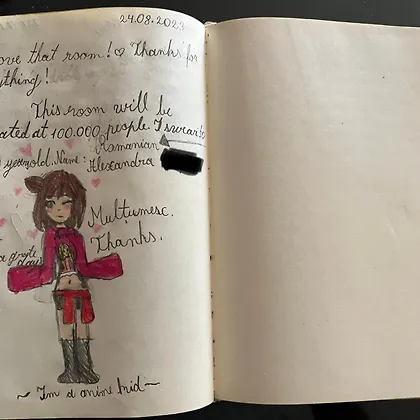 24.08.2023
ove that room! Thanks for
ything!
This room will be
ated at 100.000 people. I swear!
Romanian
yearold. Name: Alexandra
Multumesc.
Thanks.
a grate
day
~ I'm a anime kid ~